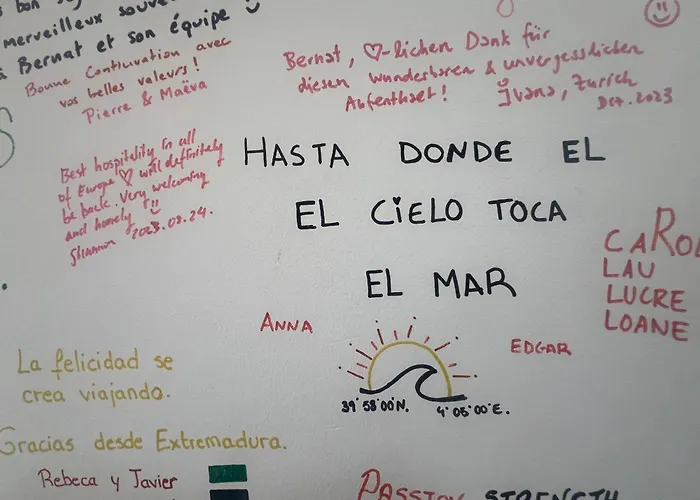 merveilleux souve
à Bernat et son équipe
Bonne Continuation avec
vos belles valeurs !
Pierre & Maëva
Bernat, ♡-lichen Dank für
diesen wunderbaren & unvergesslichen
Aufenthalt!
Ivana, Zurich
Oct. 2023
Best hospitality in all
of Europe ♡ will definitely
be back. Very welcoming
and homely !!
Shannon 2023.08.24.
HASTA DONDE EL
EL CIELO TOCA
EL MAR
ANNA
EDGAR
39°58'00"N.
4°05'00"E.
CAROL
LAU
LUCRE
LOANE
La felicidad se
crea viajando.
Gracias desde Extremadura.
Rebeca y Javier
PASSION STRENGTH